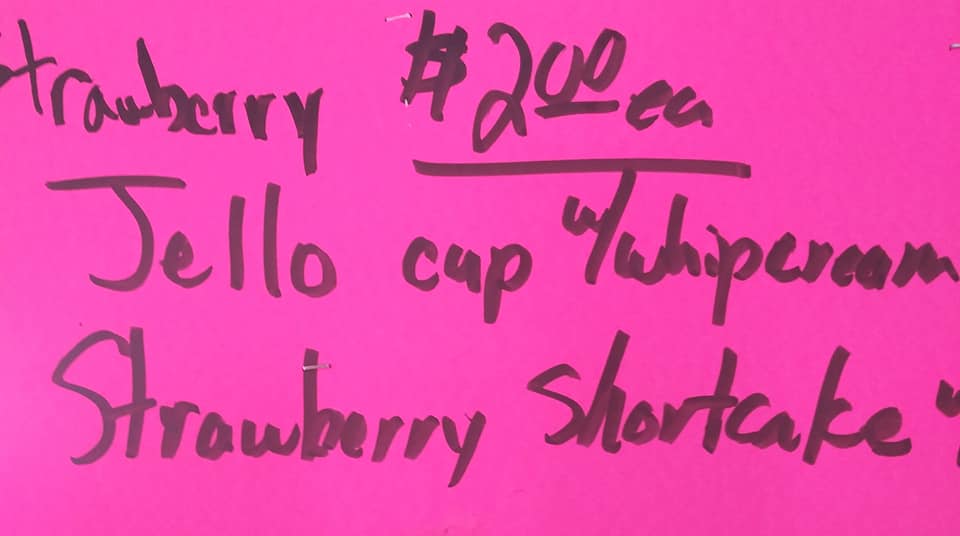 Strawberry $2.00 ea
Jello cup w/whipcream
Strawberry Shortcake